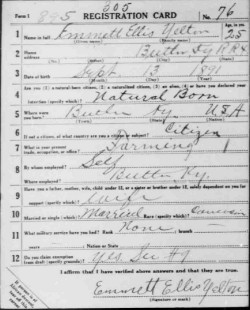 Form 1 895 505 REGISTRATION CARD No. 76
1 Name in full Emmett Ellis Age, in yrs. 25
2 Home address Butler Ky
3 Date of birth Sept. 13 1891
4 Are you (1) a natural-born citizen, (2) a naturalized citizen, (3) an alien, (4) or have you declared your intention (specify which)? Natural Born
5 Where were you born? Butler Ky. USA
6 If not a citizen, of what country are you a citizen or subject? Citizen
7 What is your present trade, occupation, or office? Farming
8 By whom employed? Self
Where employed? Butler, Ky.
9 Have you a father, mother, wife, child under 12, or a sister or brother under 12, solely dependent on you for support (specify which)? wife
10 Married or single (which)? Married Race (specify which)? Caucasian
11 What military service have you had? Rank None branch
years Nation or State
12 Do you claim exemption from draft (specify grounds)? Yes.
I affirm that I have verified above answers and that they are true.
Emmett Ellis
(Signature or mark)